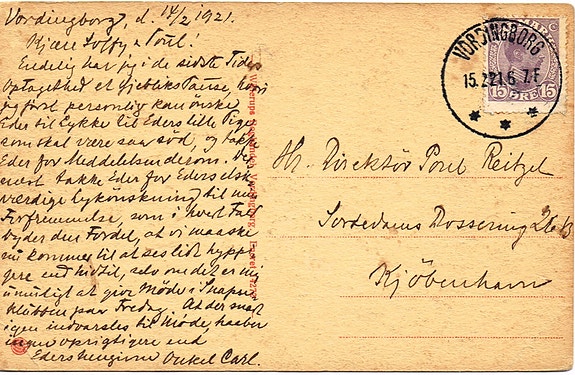 Vordingborg, d. 14/2 1921.
Kjære Soffy & Poul!
Endelig har jeg i de sidste Tiders
Optagethed et Øjebliks Pause, hvori
jeg først personlig kan ønske
Eder til Lykke til Eders lille Pige
som skal være saa sød, og takke
Eder for Meddelelsen derom. Der-
næst takke Eder for Eders elsk-
værdige Lykønskning til min
Forfremmelse, som i hvert Fald
byder den Fordel, at vi maaske
nu kommer til at ses lidt hyppi-
gere end hidtil, selv om det er mig
umuligt at give Møde i Snapse-
klubben paa Fredag. At der snart
igen indvarsles til Møde, haaber
ingen oprigtigere end
Eders hengivne Onkel Carl.
VORDINGBORG
15.2.21.6-7.F
DANMARK
15 ØRE 15
Hr. Direktør Poul Reitzel
Sortedams Dossering
Kjöbenhavn